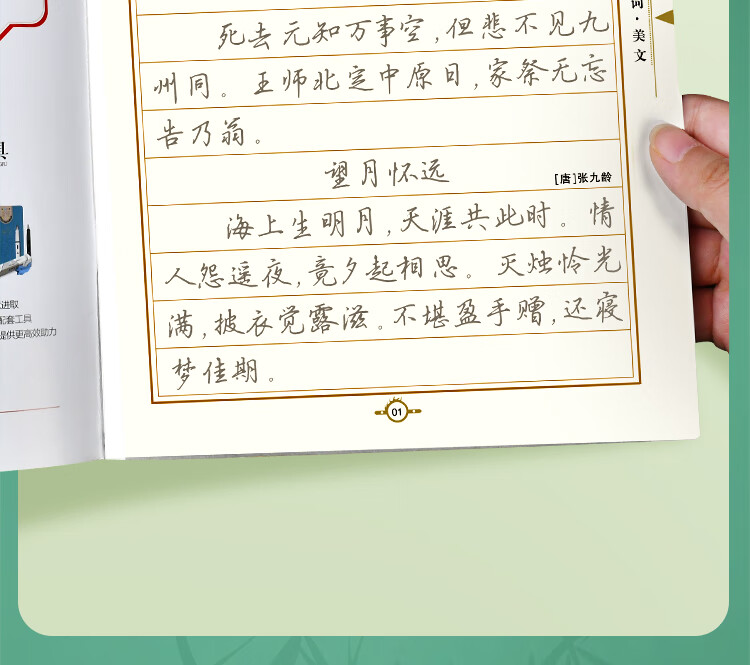 死去元知万事空,但悲不见九
州同。王师北定中原日,家祭无忘
告乃翁。
望月怀远
[唐]张九龄
海上生明月,天涯共此时。情
人怨遥夜,竟夕起相思。灭烛怜光
满,披衣觉露滋。不堪盈手赠,还寝
梦佳期。
01
词·美文
具
进取
配套工具
提供更高效助力